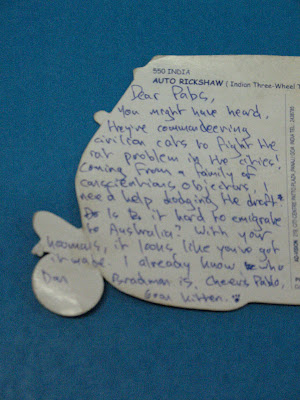 550 INDIA
AUTO RICKSHAW ( Indian Three-Wheel T
Dear Pabs,
You might have heard,
they're commandeering
civilian cats to fight the
rat problem in the cities!
Coming from a family of
conscientious objectors, I
need help dodging the draft.
Is it hard to emigrate
to Australia? With your
hoomans, it looks like you've got
it made. I already know who
Don Bradman is. Cheers Pablo,
Gran Kitten.